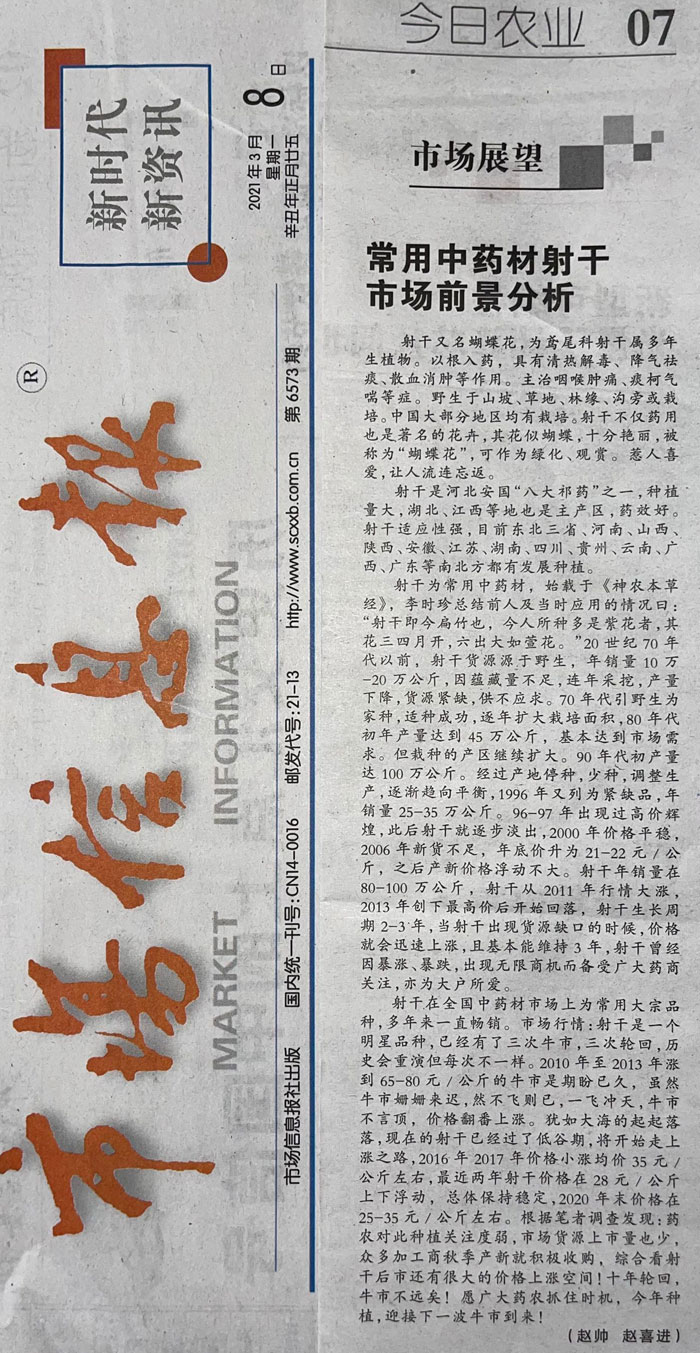 今日农业 07
新时代
新资讯
2021年3月
星期一
8日
辛丑年正月廿五
市场信息报
®
MARKET INFORMATION
市场信息报社出版 国内统一刊号:CN14-0016 邮发代号:21-13 http://www.scxxb.com.cn 第6573期
市场展望
常用中药材射干
市场前景分析
射干又名蝴蝶花,为鸢尾科射干属多年
生植物。以根入药，具有清热解毒、降气祛
痰、散血消肿等作用。主治咽喉肿痛、痰柯气
喘等症。野生于山坡、草地、林缘、沟旁或栽
培。中国大部分地区均有栽培。射干不仅药用
也是著名的花卉,其花似蝴蝶,十分艳丽,被
称为“蝴蝶花”,可作为绿化、观赏。惹人喜
爱,让人流连忘返。
射干是河北安国“八大祁药”之一,种植
量大,湖北、江西等地也是主产区,药效好。
射干适应性强,目前东北三省、河南、山西、
陕西、安徽、江苏、湖南、四川、贵州、云南、广
西、广东等南北方都有发展种植。
射干为常用中药材，始载于《神农本草
经》，李时珍总结前人及当时应用的情况曰：
“射干即今扁竹也，今人所种多是紫花者,其
花三四月开,六出大如萱花。”20世纪70年
代以前，射干货源源于野生，年销量10万
-20万公斤,因蕴藏量不足,连年采挖,产量
下降,货源紧缺,供不应求。70年代引野生为
家种,适种成功,逐年扩大栽培面积,80年代
初年产量达到45万公斤，基本达到市场需
求。但栽种的产区继续扩大。90年代初产量
达100万公斤。经过产地停种,少种,调整生
产,逐渐趋向平衡,1996年又列为紧缺品,年
销量25-35万公斤。96-97年出现过高价辉
煌,此后射干就逐步淡出,2000年价格平稳,
2006年新货不足，年底价升为21-22元/公
斤，之后产新价格浮动不大。射干年销量在
80-100万公斤，射干从2011年行情大涨,
2013年创下最高价后开始回落，射干生长周
期2-3年,当射干出现货源缺口的时候,价格
就会迅速上涨,且基本能维持3年,射干曾经
因暴涨、暴跌,出现无限商机而备受广大药商
关注,亦为大户所爱。
射干在全国中药材市场上为常用大宗品
种,多年来一直畅销。市场行情:射干是一个
明星品种,已经有了三次牛市,三次轮回,历
史会重演但每次不一样。2010年至2013年涨
到65-80元/公斤的牛市是期盼已久，虽然
牛市姗姗来迟,然不飞则已,一飞冲天,牛市
不言顶，价格翻番上涨。犹如大海的起起落
落,现在的射干已经过了低谷期,将开始走上
涨之路,2016年2017年价格小涨均价35元/
公斤左右,最近两年射干价格在28元/公斤
上下浮动，总体保持稳定,2020年末价格在
25-35元/公斤左右。根据笔者调查发现:药
农对此种植关注度弱,市场货源上市量也少,
众多加工商秋季产新就积极收购，综合看射
干后市还有很大的价格上涨空间!十年轮回,
牛市不远矣！愿广大药农抓住时机，今年种
植,迎接下一波牛市到来!
（赵帅 赵喜进）